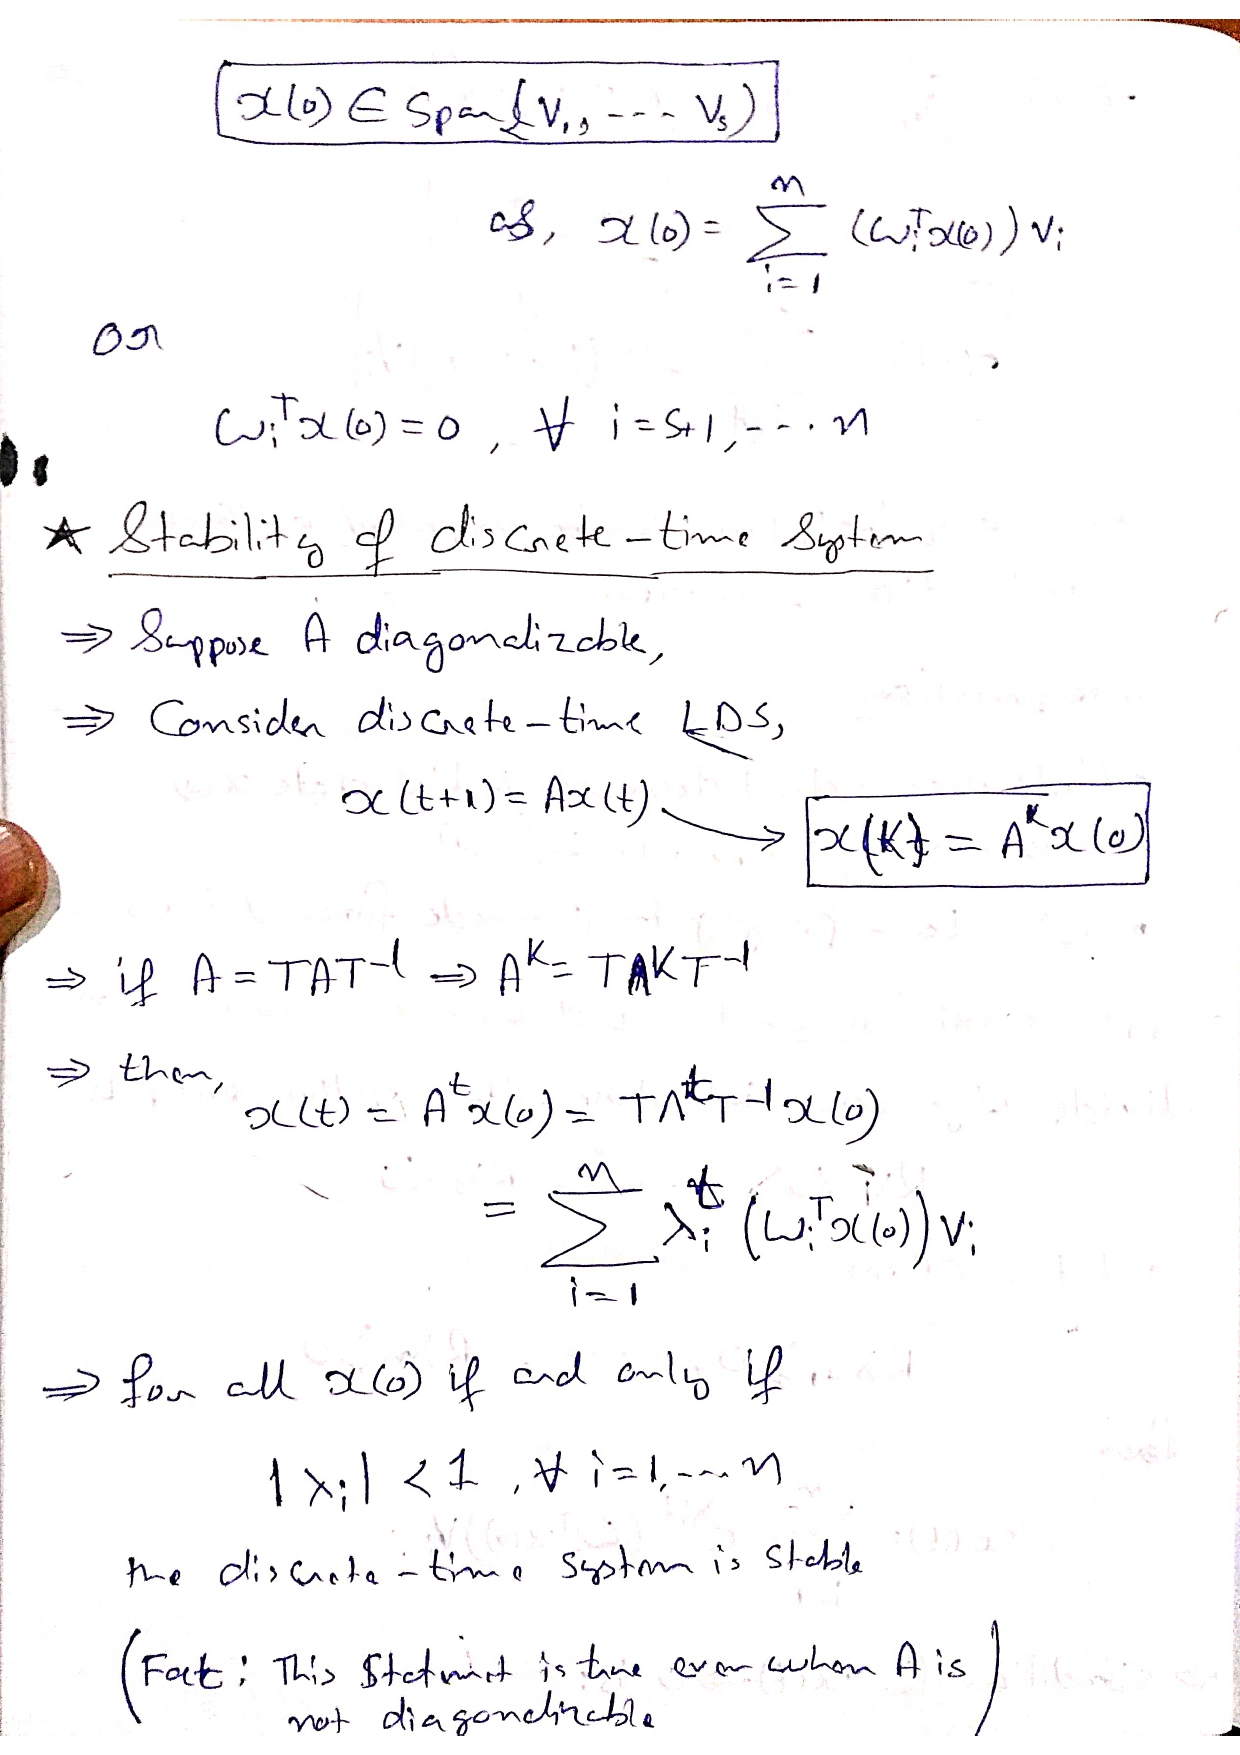 x(0) ∈ Span{V₁, --- Vₛ)
as, x(0) = Σ_{i=1}^{n} (wᵢᵀx(0)) vᵢ
or
wᵢᵀx(0) = 0 , ∀ i = s+1, --- n
★ Stability of discrete-time System
⇒ Suppose A diagonalizable,
⇒ Consider discrete-time LDS,
x(t+1) = Ax(t). → x(k) = Aᵏx(0)
⇒ if A = TAT⁻¹ ⇒ Aᵏ = TΛKT⁻¹
⇒ then,
x(t) = Aᵗx(0) = TΛᵗT⁻¹x(0)
= Σ_{i=1}^{n} λᵢᵗ (wᵢᵀx(0)) vᵢ
⇒ for all x(0) if and only if
|λᵢ| < 1 , ∀ i=1, --- n
the discrete-time system is stable
(Fact: This Statment is true even when A is
not diagonalizable)